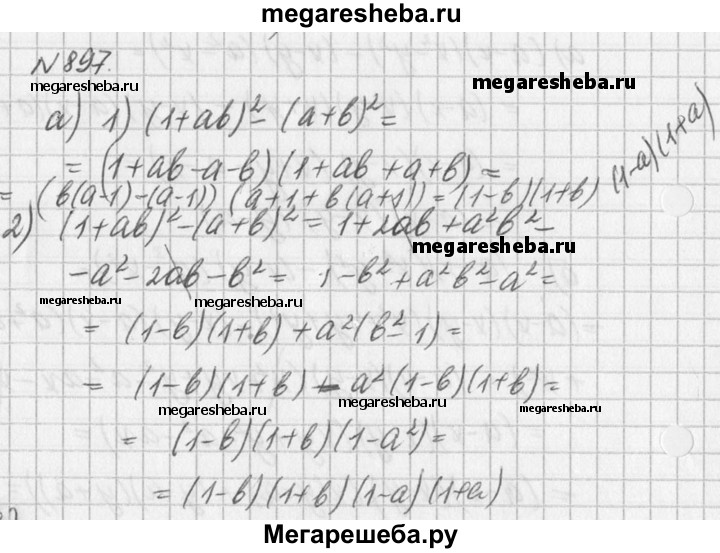 megaresheba.ru
N 897.
megaresheba.ru
megaresheba.ru
а) 1) (1+ab)² - (a+b)² =
= (1+ab-a-b)(1+ab+a+b) =
= (b(a-1)-(a-1)) (a+1+b(a+1)) = (1-b)(1+b) (1-a)(1+a)
2) (1+ab)² - (a+b)² = 1+2ab+a²b² -
megaresheba.ru
-a² - 2ab - b² = 1 - b² + a²b² - a² =
megaresheba.ru
megaresheba.ru
= (1-b)(1+b) + a²(b²-1) =
= (1-b)(1+b) - a²(1-b)(1+b) =
megaresheba.ru
megaresheba.ru
megaresheba.ru
= (1-b)(1+b)(1-a²) =
= (1-b)(1+b)(1-a)(1+a)
Мегарешеба.ру